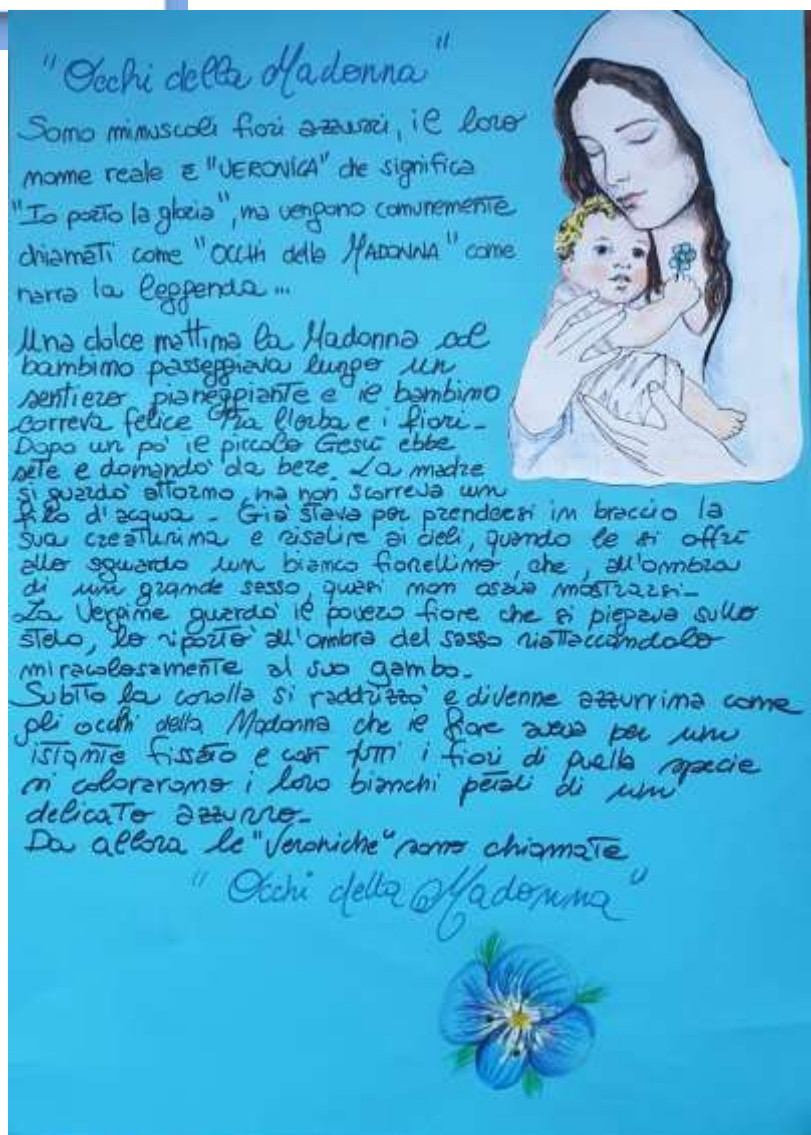 "Occhi della Madonna"
Sono minuscoli fiori azzurri, il loro
nome reale è "VERONICA" che significa
"Io porto la gloria", ma vengono comunemente
chiamati come "OCCHI della MADONNA" come
narra la leggenda...
Una dolce mattina la Madonna col
bambino passeggiava lungo un
sentiero pianeggiante e il bambino
correva felice tra l'erba e i fiori.
Dopo un po' il piccolo Gesù ebbe
sete e domandò da bere. La madre
si guardò attorno, ma non scorreva un
filo d'acqua. Già stava per prendersi in braccio la
sua creaturina e risalire ai cieli, quando le si offrì
allo sguardo un bianco fiorellino, che, all'ombra
di un grande sasso, quasi non osava mostrarsi.
La Vergine guardò il povero fiore che si piegava sullo
stelo, lo riportò all'ombra del sasso riattaccandolo
miracolosamente al suo gambo.
Subito la corolla si raddrizzò e divenne azzurrina come
gli occhi della Madonna che il fiore aveva per un
istante fissato e così tutti i fiori di quella specie
si colorarono i loro bianchi petali di un
delicato azzurro.
Da allora le "Veroniche" sono chiamate
"Occhi della Madonna"